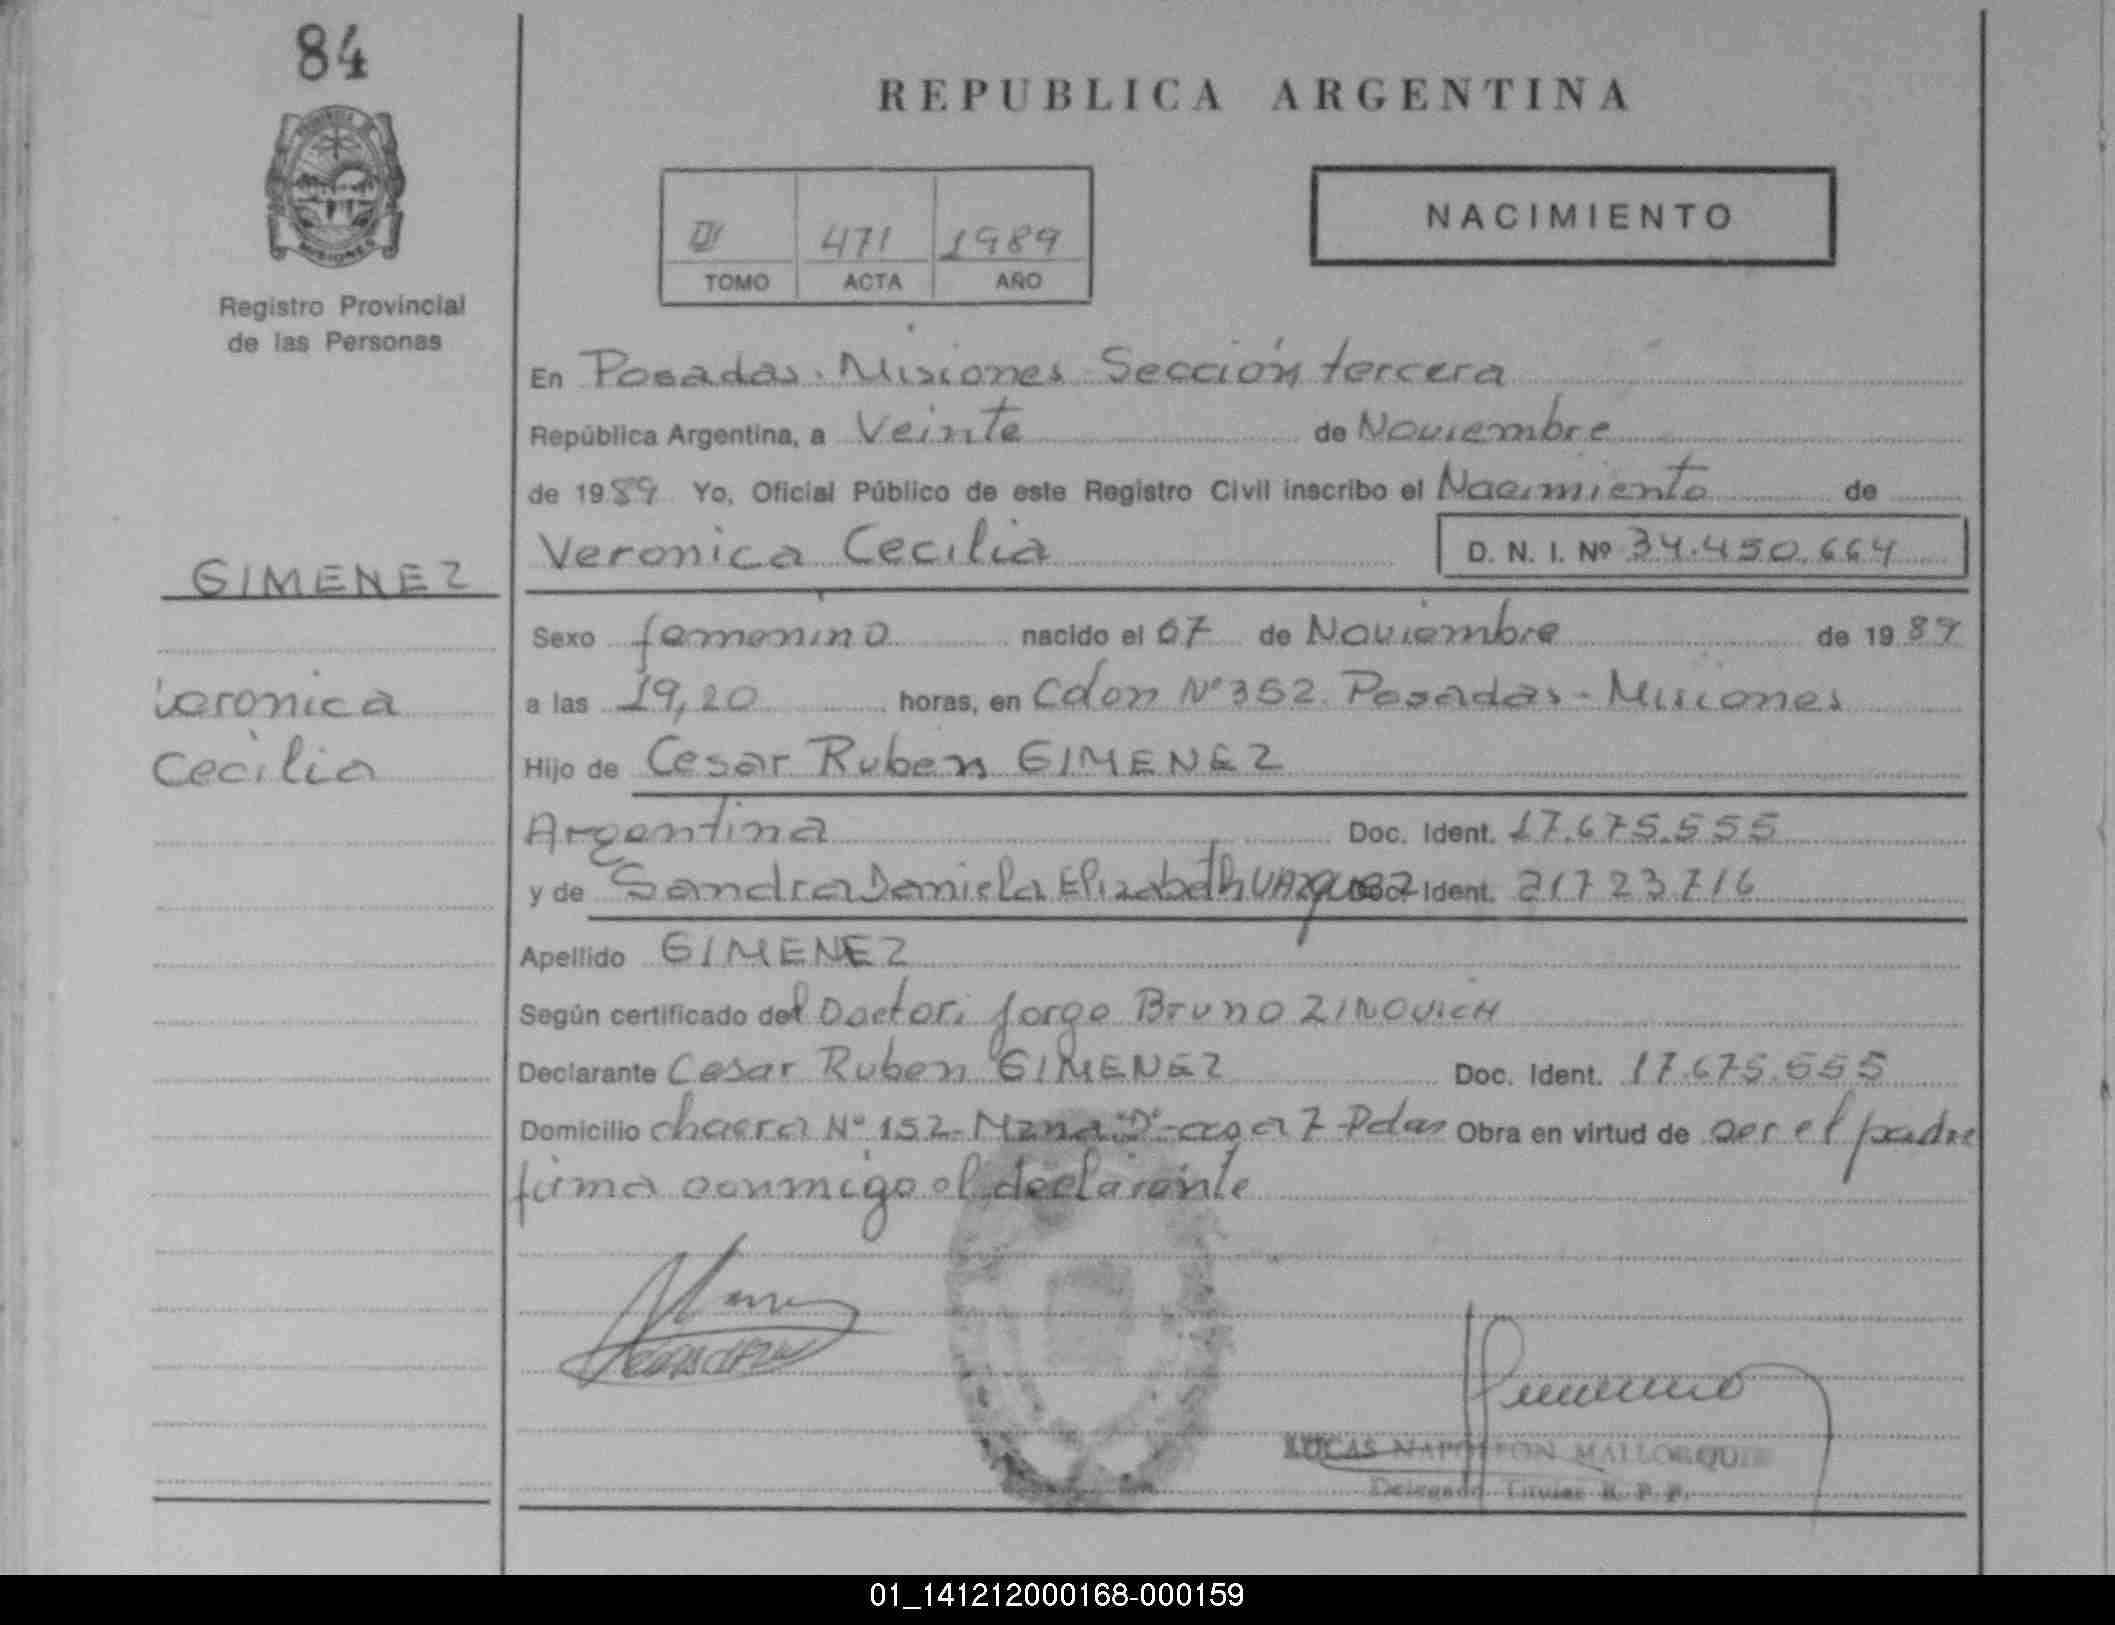 84
REPUBLICA ARGENTINA
NACIMIENTO
471 1989
TOMO ACTA AÑO
Registro Provincial
de las Personas
En Posadas. Misiones Sección tercera
República Argentina, a Veinte de Noviembre
de 1989 Yo, Oficial Público de este Registro Civil inscribo el Nacimiento de
Veronica Cecilia D. N. I. Nº 34.450.664
GIMENEZ
Sexo femenino nacido el 07 de Noviembre de 1989
Veronica
a las 19,20 horas, en Colon Nº 352. Posadas - Misiones
Cecilia
Hijo de Cesar Ruben GIMENEZ
Argentina Doc. Ident. 17.675.555
y de Sandra Daniela Elizabeth VAZquez Doc. Ident. 21723716
Apellido GIMENEZ
Según certificado del Doctor: Jorge Bruno ZINOVICH
Declarante Cesar Ruben GIMENEZ Doc. Ident. 17.675.555
Domicilio chacra Nº 152- Mzna "D"-casa 7 Pdas Obra en virtud de ser el padre
firma conmigo el declarante
LUCAS NAPOLEON MALLORQUIN
Delegado Titular R. P. P.
01_141212000168-000159